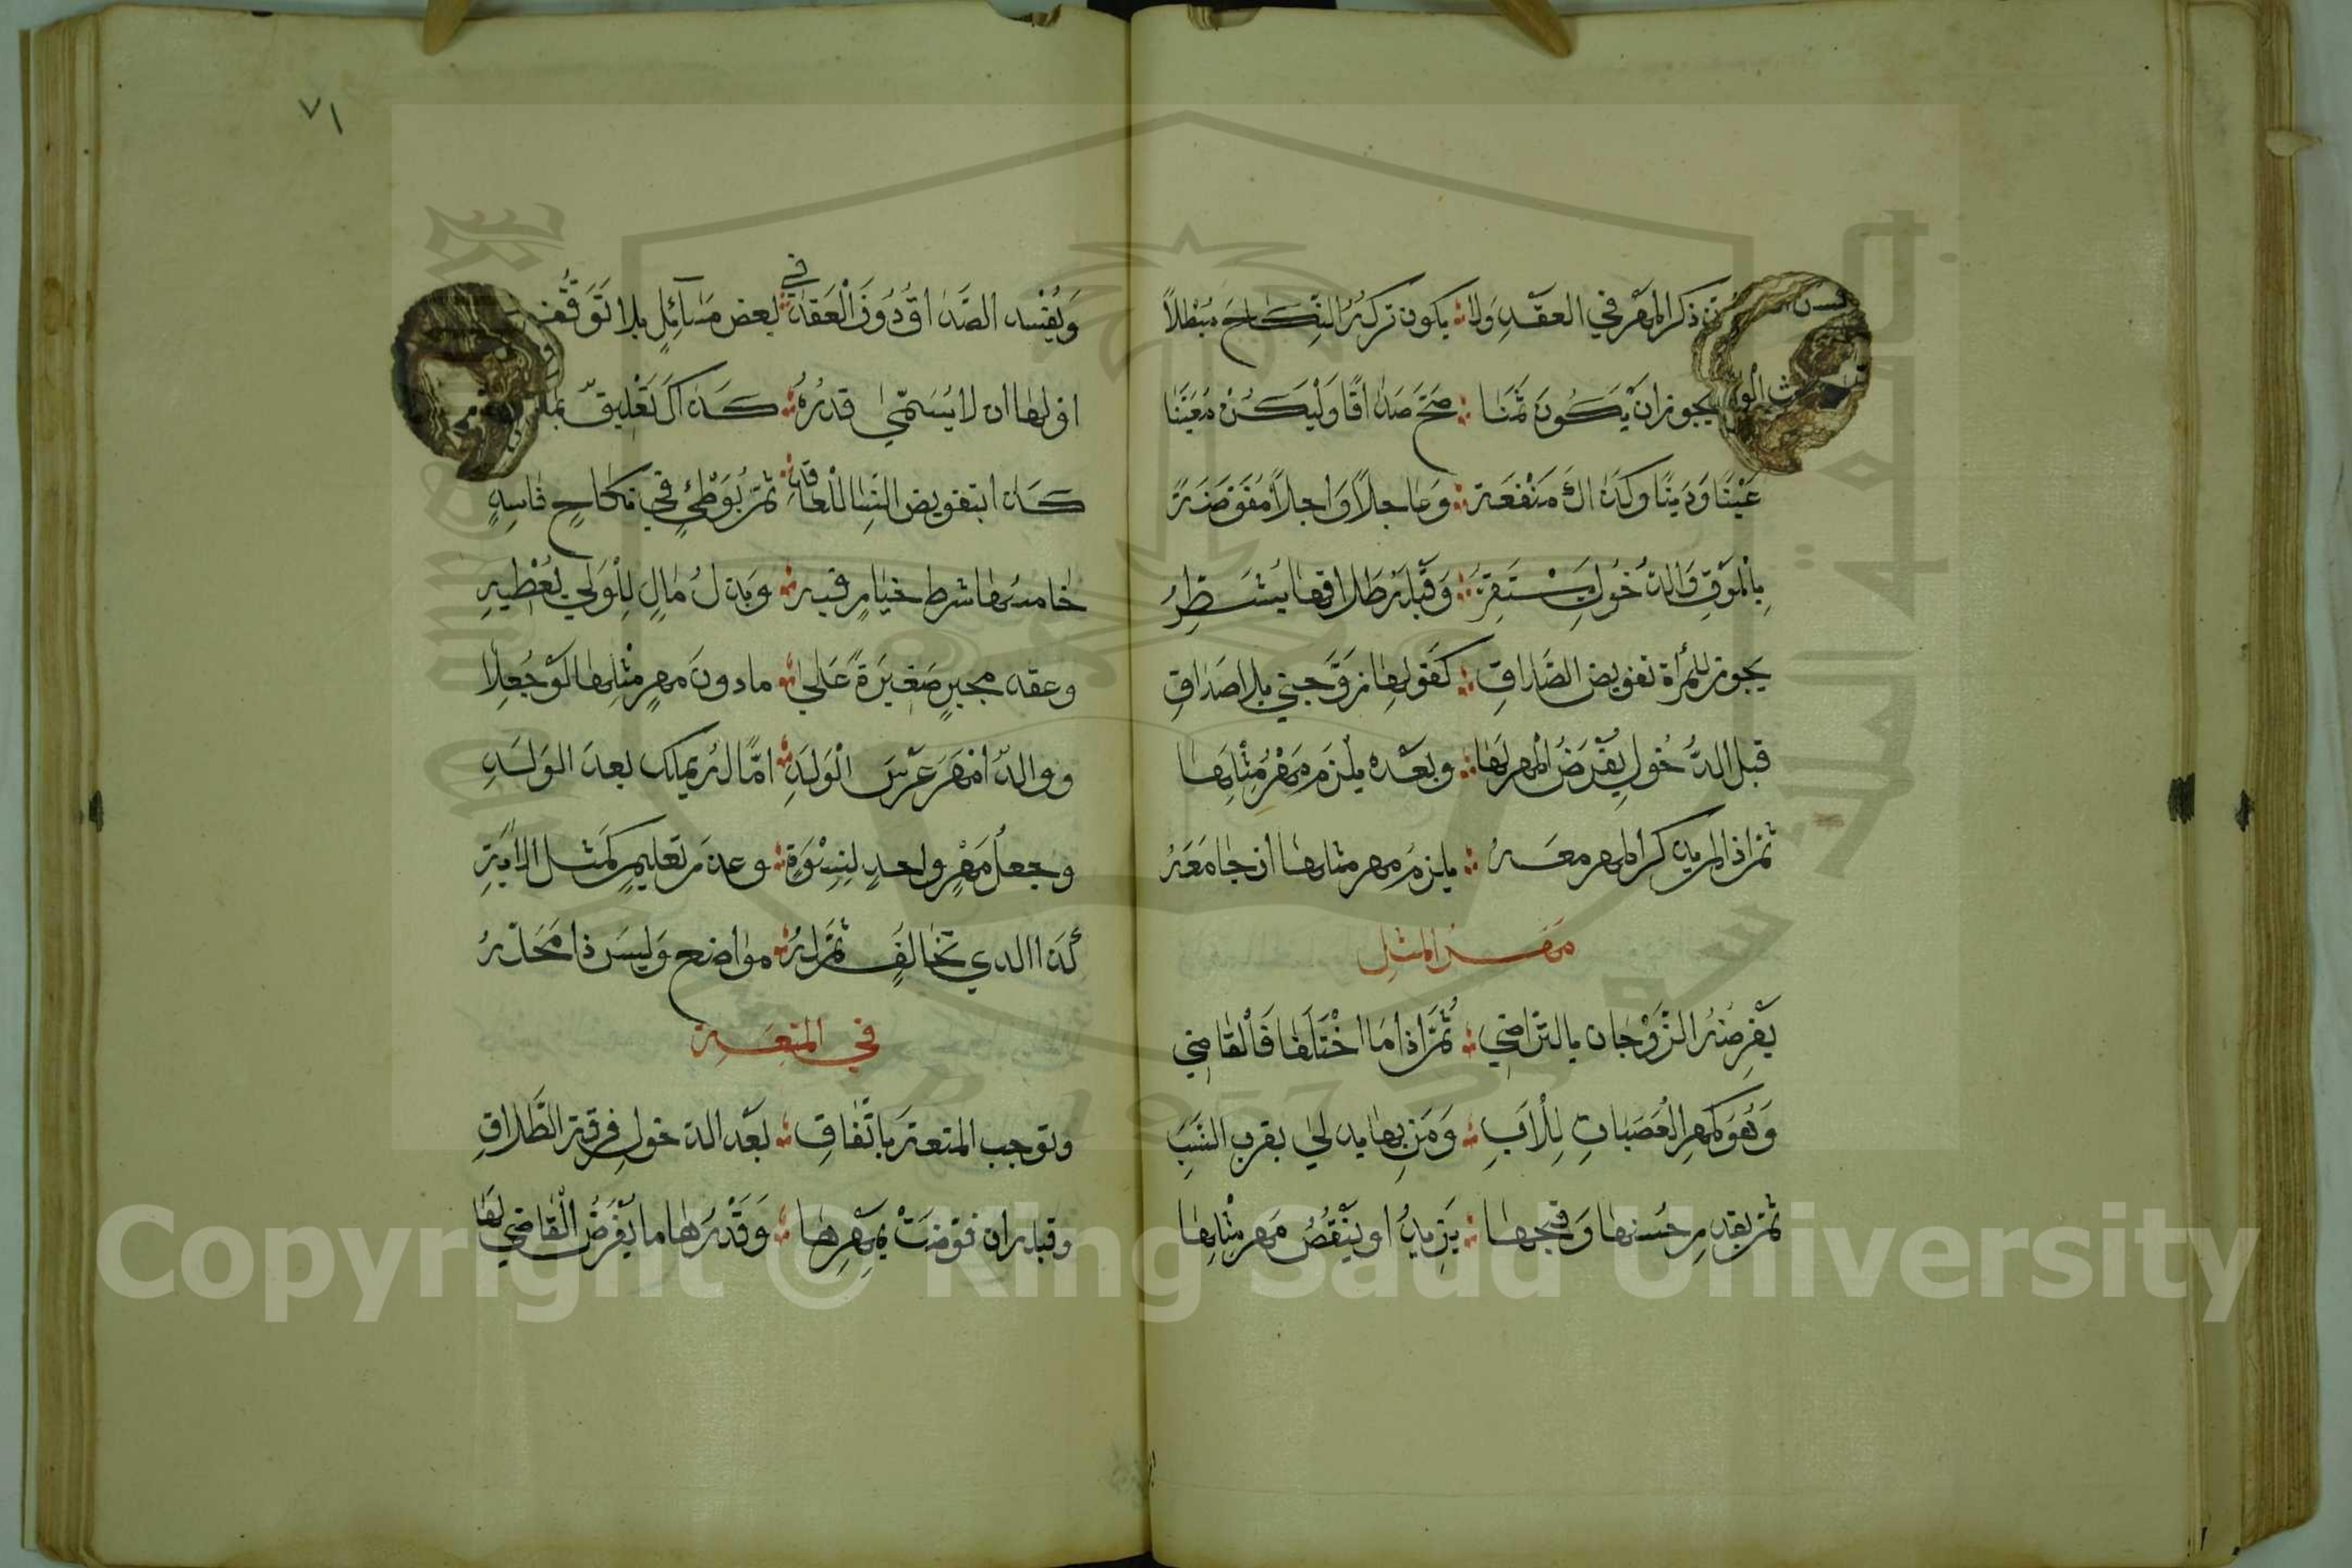 ذكر المهر في العقد ولا يكون تركه النكاح مبطلا
يجوز ان يكون ثمنا صح صداقا وليكن معينا
عينا ودينا وكذاك منفعة وعاجلا واجلا مفوضة
بالموت والدخول يستقر وقبله طلاقها يشطر
يجوز للمرأة تفويض الصداق كقولها زوجني بلا صداق
قبل الدخول يفرض المهر لها وبعده يلزم مهر مثلها
ثم اذا لم يذكر المهر معه يلزم مهر مثلها أن جامعه
مهر المثل
يفرضه الزوجان بالتراضي ثم اذا ما اختلفا فالقاضي
وهو كمهر العصبات للأب ومن بها يدلى بقرب النسب
ثم بقدر حسنها وقبحها يزيد او ينقص مهر مثلها
٧١
ويفسد الصداق دون العقد في بعض مسائل بلا توقف
اولها ان لا يسمى قدره كذاك تعليق
كذا بتفويض النسا للعاقد ثم بوطئ في نكاح فاسد
خامسها شرط خيار فيه وبذل مال للولي يعطيه
وعقد مجبر صغيرة على ما دون مهر مثلها لو جعلا
ووالد أمهر عرس الولد اما له يملك بعد الولد
وجعل مهر واحد لنسوة وعدم تعليم كمثل الاية
كذا الذي تخالف ثم له مواضع وليس ذا محله
في المتعة
وتوجب المتعة باتفاق بعد الدخول فرقة الطلاق
وقبله ان فوضت بمهرها وقدرها ما يفرض القاضي لها
Copyright © King Saud University
1957